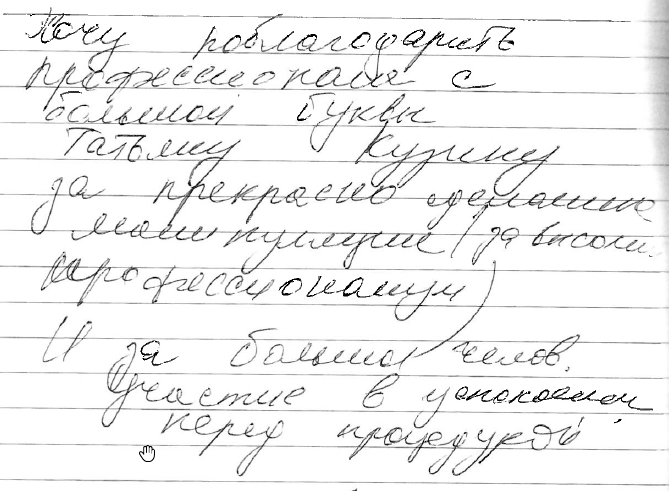 Хочу поблагодарить
профессионала с
большой буквы
Татьяну Кузину
за прекрасно сделанные
манипуляции (за высокий
профессионализм)
И за большое челов.
участие в успокоении
перед процедурой